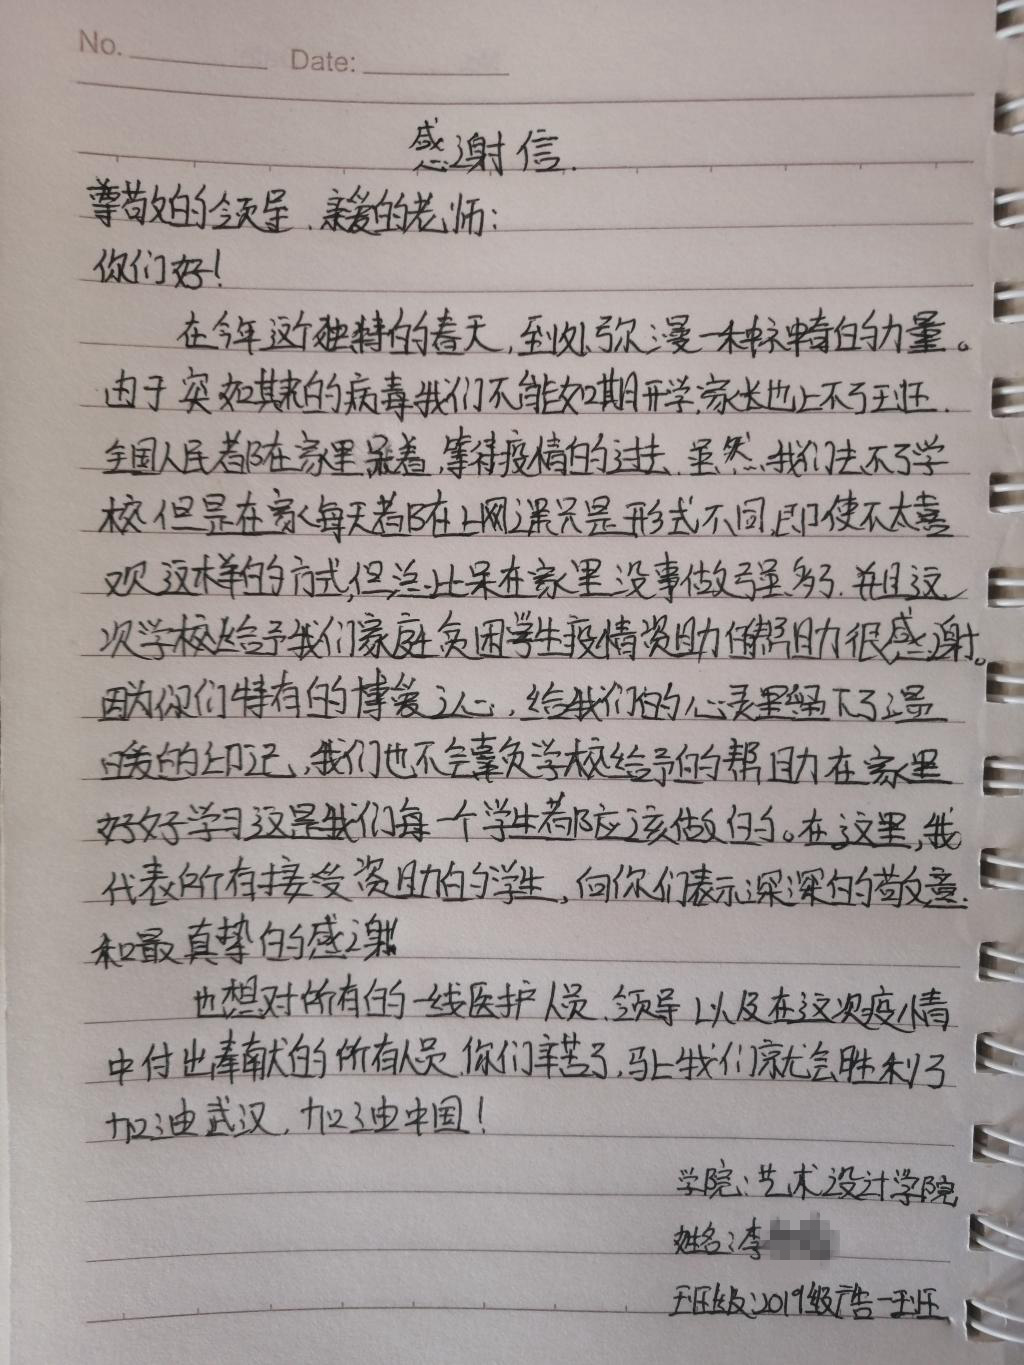 No. Date:
感谢信.
尊敬的领导、亲爱的老师:
你们好!
在今年这个独特的春天,到处弥漫一种神奇的力量。
由于突如其来的病毒我们不能如期开学,家长也上不了班.
全国人民都在家里呆着,等待疫情的过去.虽然,我们去不了学
校但是在家每天都在上网课只是形式不同,即使不太喜
欢这样的方式,但总比呆在家里没事做强多了.并且这
次学校给予我们家庭贫困学生疫情资助帮助很感谢。
因为你们特有的博爱之心,给我们的心灵里留下了温
暖的印记,我们也不会辜负学校给予的帮助在家里
好好学习这是我们每一个学生都应该做的。在这里,我
代表所有接受资助的学生,向你们表示深深的敬意.
和最真挚的感谢!
也想对所有的一线医护人员、领导以及在这次疫情
中付出奉献的所有人员.你们辛苦了,马上我们就会胜利了
加油武汉,加油中国!
学院:艺术设计学院
姓名:李
班级:2019级广告一班